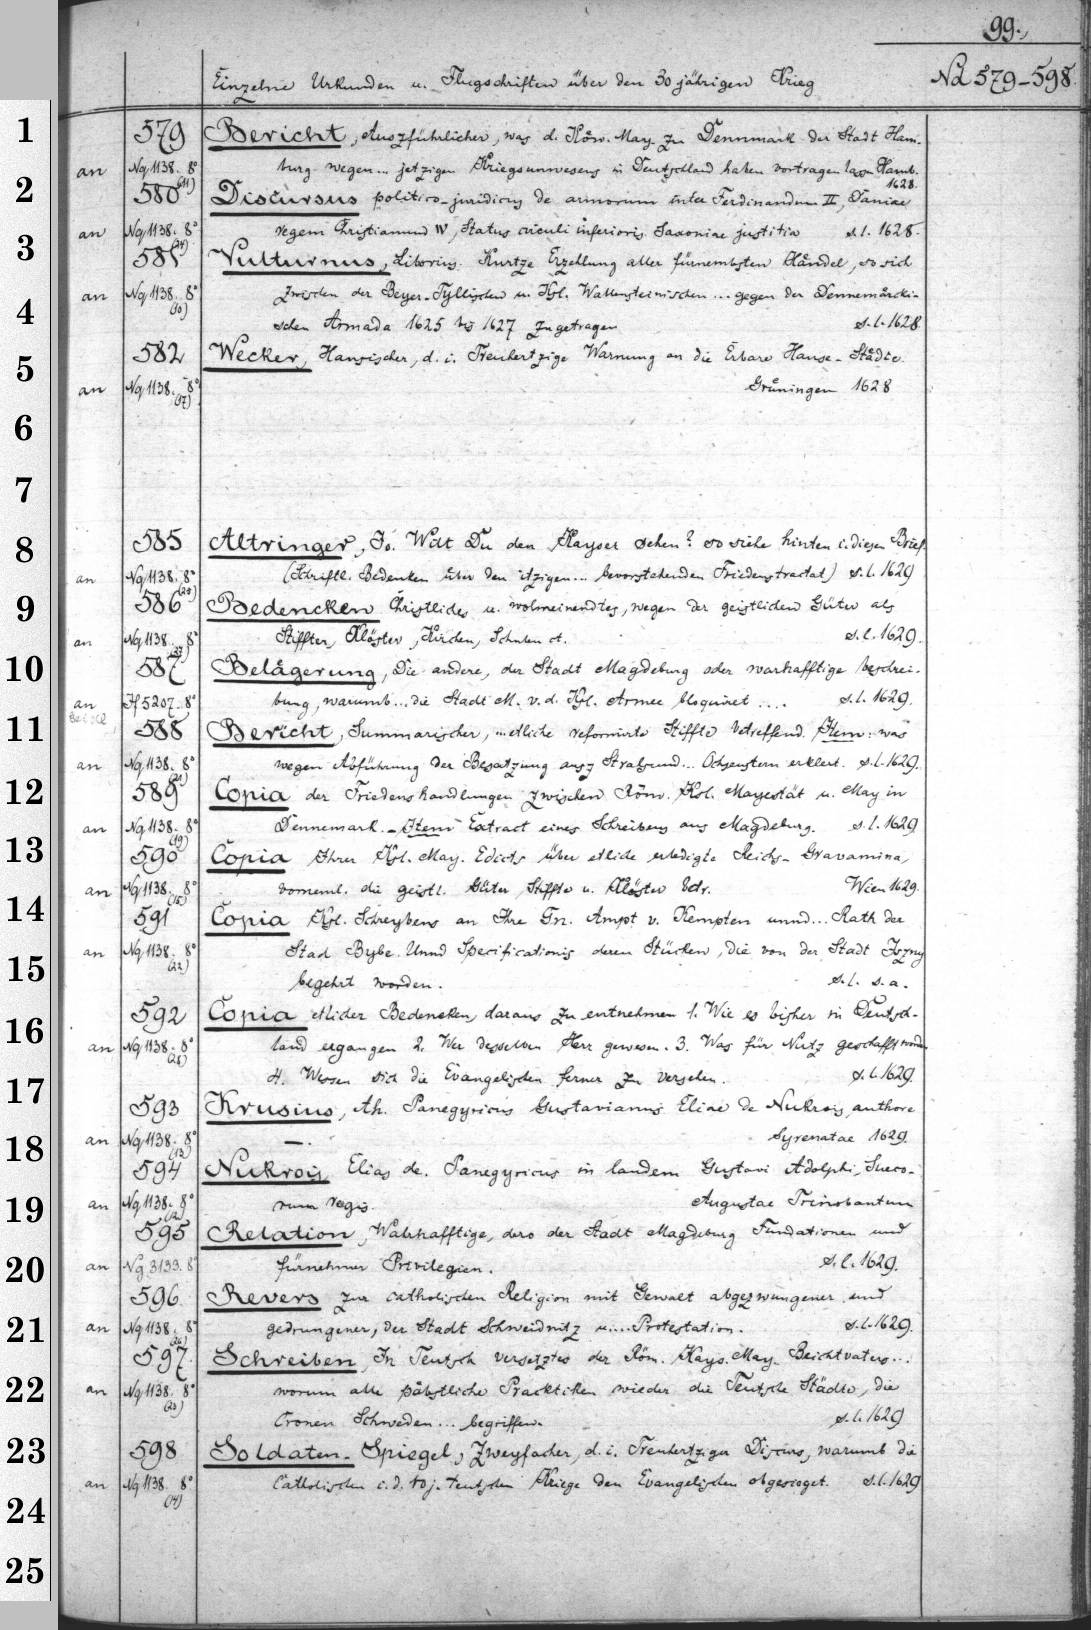 99.
Einzelne Urkunden u. Flugschriften über den 30 jährigen Krieg Nd 579-598
1
579 Bericht, Auszführlicher, was d. Köw. May. zu Dennmark der Stadt Ham-
an Nq 1138. 8° (11) burg wegen... jetzigen Kriegsunwesens in Deutschland haben vortragen lassen Hamb. 1628.
2
580 Discursus politico-juridicus de armorum inter Ferdinandum II, Daniae
an Nq 1138. 8° regem Christianum IV, Status circuli inferioris Saxoniae justitia s.l. 1628.
3
581 Vulturnus, Liborius. Kurtze Erzehlung aller fürnembsten Håndel, so sich
an Nq 1138. 8° (10) zwischen der Beyer-Tyllischen u. Kgl. Wallensteinischen ... gegen der Dennemårcki-
4
schen Armada 1625 bis 1627 zugetragen s.l. 1628
582 Wecker, Hansischer, d. i. Treuhertzige Warnung an die Erbare Hanse-Städte.
5
an Nq 1138. 8° (17) Grůningen 1628
6
7
8
585 Altringer, Jo. Wilt Du den Kayser sehen? so siehe hinten i. diesen Brief.
an Nq 1138. 8° (20) (Schriftl. Bedenken über den itzigen... bevorstehenden Friedenstractat) s.l. 1629
9
586 Bedencken Christliches u. wolmeinendtes, wegen der geistlichen Güter als
an Nq 1138. 8° Stiffter, Klöster, Kirchen, Schulen etc. s.l. 1629.
10
587 Belägerung, Die andere, der Stadt Magdeburg oder warhafftige beschrei-
an Jf 5207. 8° bung, warumb... die Stadt M. v. d. Kgl. Armee bloquiret .... s.l. 1629.
11
588 Bericht, Summarischer, ... etliche reformirte Stiffte betreffend. Item: was
an Nq 1138. 8° (21) wegen Abführung der Besatzung ausz Stralsund... Ochsenstern erklert. s.l. 1629.
12
589 Copia der Friedenshandlungen zwischen Röm. Ksl. Mayestät u. May in
an Nq 1138. 8° (19) Dennemark. - Item Extract eines Schreibens aus Magdeburg. s.l. 1629
13
590 Copia Ihrer Kgl. May. Edicts über etliche erledigte Reichs-Gravamina,
an Nq 1138. 8° (15) vorneml. die geistl. Güter Stiffte u. Klöster betr. Wien 1629.
14
591 Copia Kgl. Schreybens an Ihre Fn. Ampt v. Kempten unnd... Rath der
an Nq 1138. 8° (22) Stad Bybe. Unnd Specificationis deren Stücken, die von der Stadt Iszny
15
begehrt worden. s.l. s.a.
592 Copia etlicher Bedencken, daraus zu entnehmen 1. Wie es bisher in Deutsch-
16
an Nq 1138. 8° (28) land ergangen 2. Wer desselben Herr gewesen. 3. Was für Nutz geschafft worden
4. Wessen sich die Evangelischen ferner zu versehen. s.l. 1629.
17
593 Krusius, Ath. Panegyricus Gustavianus Eliae de Nukrois, authore
an Nq 1138. 8° (13) —. Syrenatae 1629.
18
594 Nukrois, Elias de. Panegyricus in laudem Gustavi Adolphi, Sueco-
an Nq 1138. 8° (12) rum regis. Augustae Trinobantum
19
595 Relation, Wahrhafftige, dero der Stadt Magdeburg Fundationen und
an Ng 3133. 8° fürnehmer Privilegien. s.l. 1629.
20
596 Revers zur catholischen Religion mit Gewalt abgezwungener und
an Nq 1138. 8° (26) gedrungener, der Stadt Schweidnitz u.... Protestation. s.l. 1629.
21
597. Schreiben, In Teutsch versetztes der Röm. Kays. May. Beichtvaters...
an Nq 1138. 8° (23) worum alle påbstliche Practiken wieder die Teutsche Städte, die
22
Cronen Schweden... begriffen. s.l. 1629
598 Soldaten-Spiegel, Zweyfacher, d. i. Treuhertziger Discurs, warumb die
23
an Nq 1138. 8° (14) Catholischen i. d. 10 j. teutschen Kriege den Evangelischen obgesieget. s.l. 1629
24
25